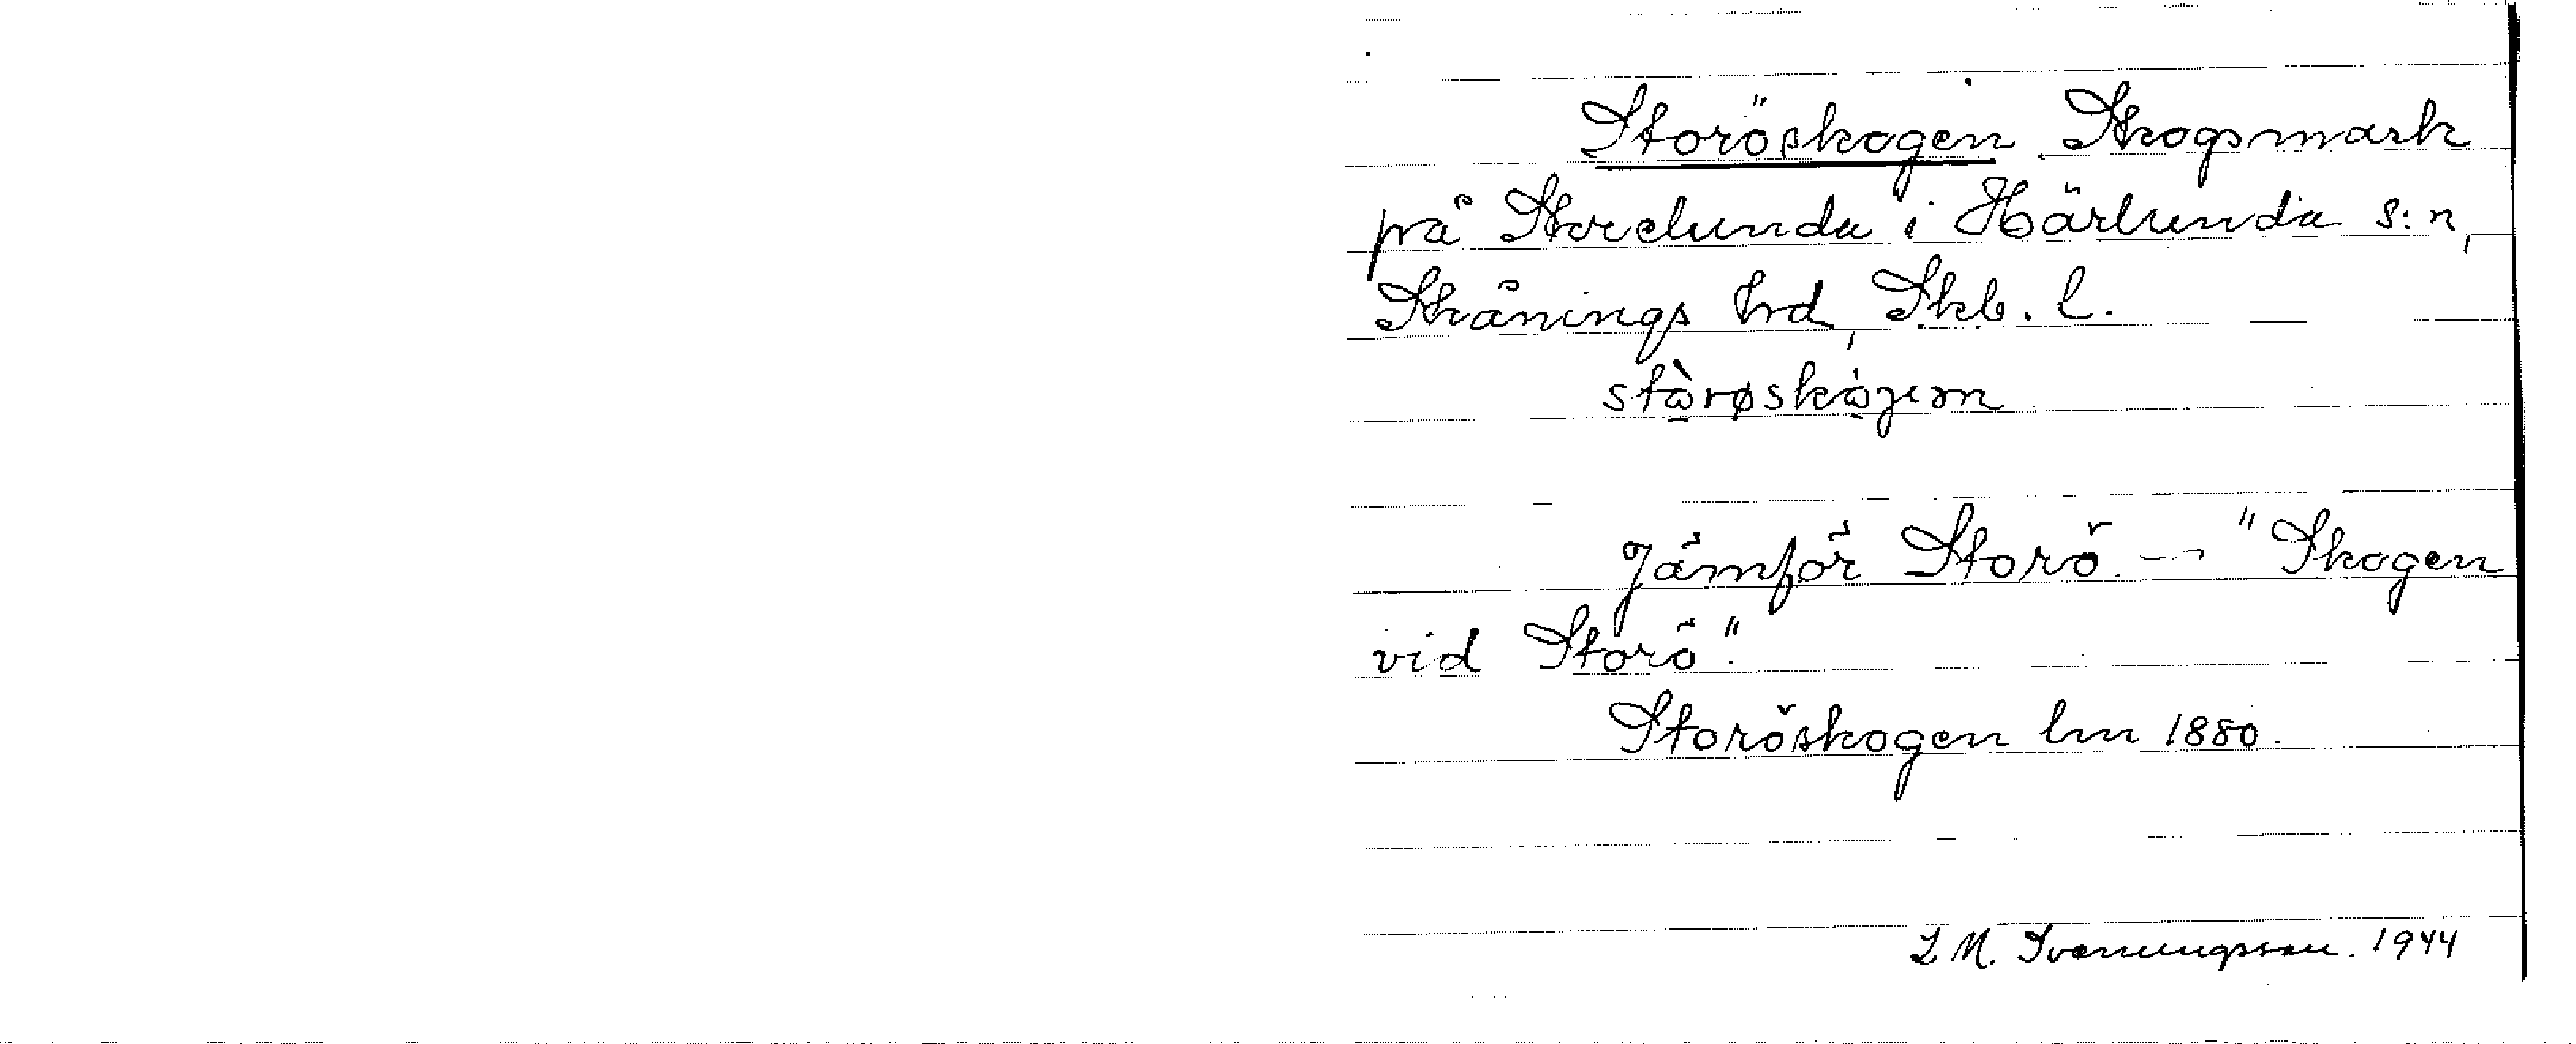 Storöskogen Skogsmark
på Storelunda i Härlunda s:n,
Skånings hrd, Skb. l.
stòrøskògen
Jämför Storö — "Skogen
vid Storö".
Storöskogen lm 1880.
L M. Svenungsson. 1944